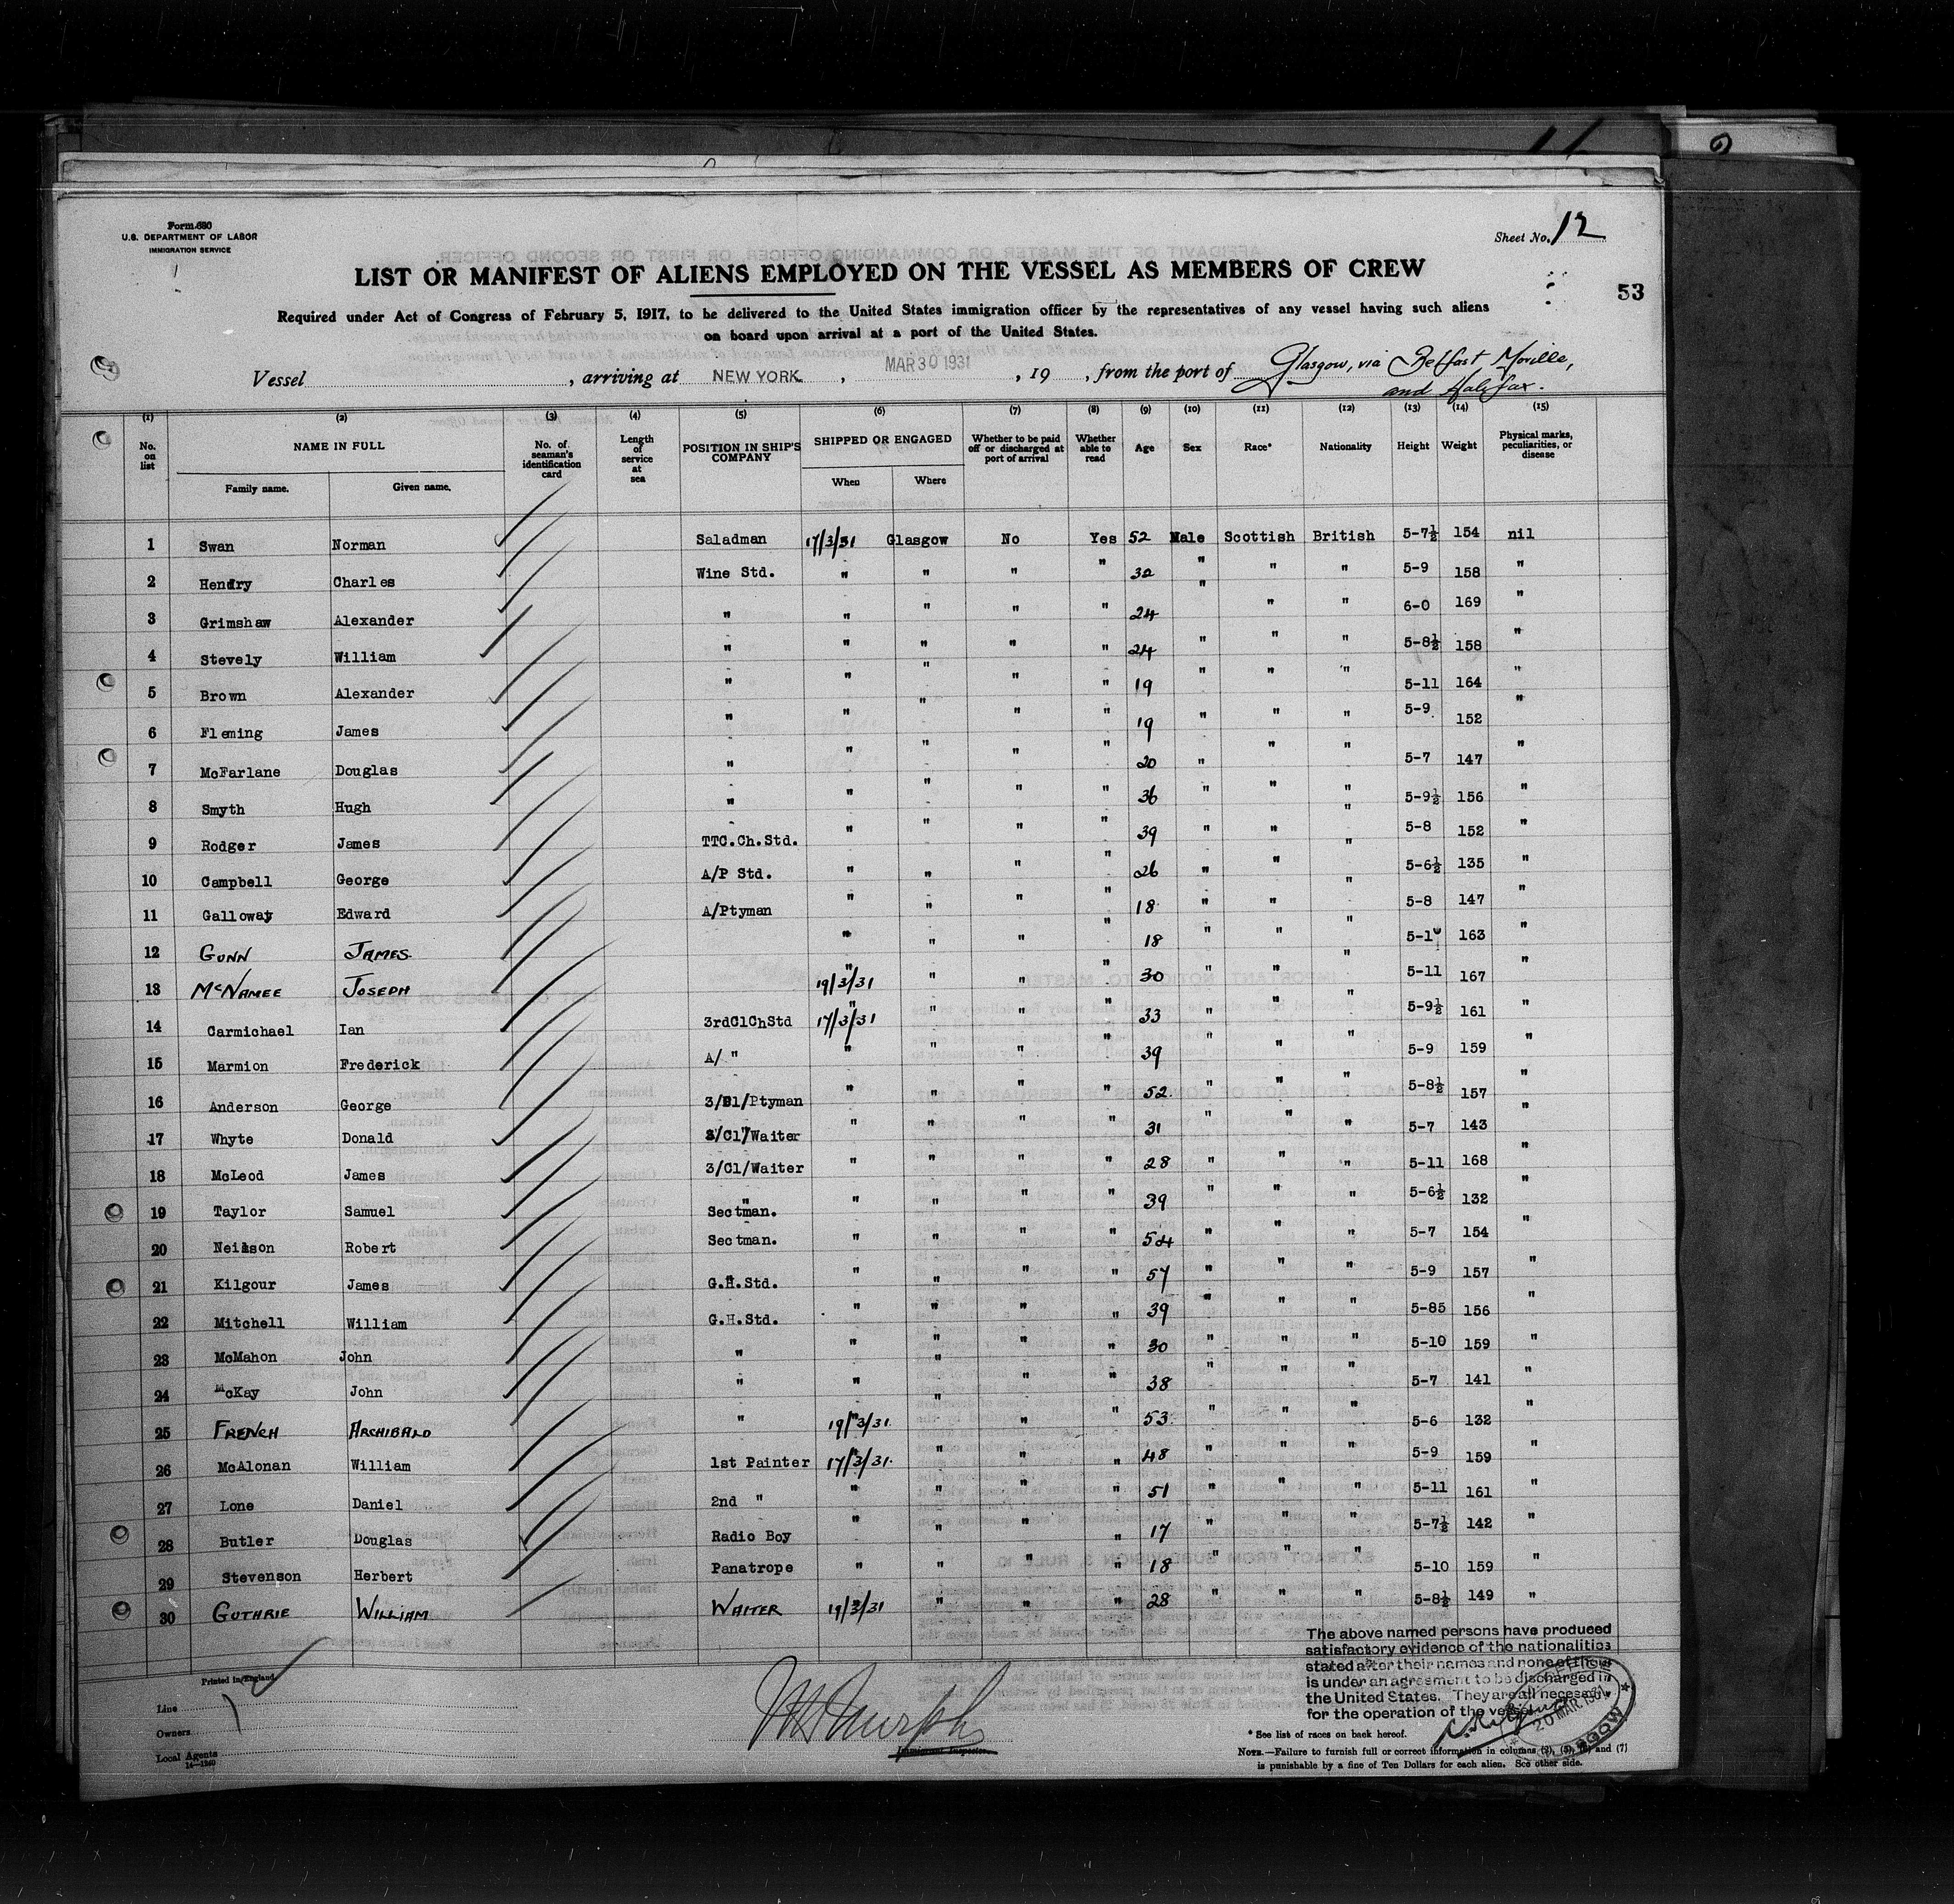 Form 680
U.S. DEPARTMENT OF LABOR
IMMIGRATION SERVICE
Sheet No. 12
53
LIST OR MANIFEST OF ALIENS EMPLOYED ON THE VESSEL AS MEMBERS OF CREW
Required under Act of Congress of February 5, 1917, to be delivered to the United States immigration officer by the representatives of any vessel having such aliens
on board upon arrival at a port of the United States.
Vessel , arriving at NEW YORK , MAR 30 1931 , 19 , from the port of Glasgow, via Belfast, Moville,
and Halifax.
(1) (2) (3) (4) (5) (6) (7) (8) (9) (10) (11) (12) (13) (14) (15)
No. on list NAME IN FULL No. of seaman's identification card Length of service at sea POSITION IN SHIP'S COMPANY SHIPPED OR ENGAGED Whether to be paid off or discharged at port of arrival Whether able to read Age Sex Race* Nationality Height Weight Physical marks, peculiarities, or disease
Family name. Given name. When Where
1 Swan Norman Saladman 17/3/31 Glasgow No Yes 52 Male Scottish British 5-7½ 154 nil
2 Hendry Charles Wine Std. " " " " 32 " " " 5-9 158 "
3 Grimshaw Alexander " " " " " 24 " " " 6-0 169 "
4 Stevely William " " " " " 24 " " " 5-8½ 158 "
5 Brown Alexander " " " " " 19 " " " 5-11 164 "
6 Fleming James " " " " " 19 " " " 5-9 152 "
7 McFarlane Douglas " " " " " 20 " " " 5-7 147 "
8 Smyth Hugh " " " " " 36 " " " 5-9½ 156 "
9 Rodger James TTC.Ch.Std. " " " " 39 " " " 5-8 152 "
10 Campbell George A/P Std. " " " " 26 " " " 5-6½ 135 "
11 Galloway Edward A/Ptyman " " " " 18 " " " 5-8 147 "
12 GUNN JAMES " " " " 18 " " " 163 "
13 McNAMEE JOSEPH 19/3/31 " " " 30 " " " 5-11 167 "
14 Carmichael Ian 3rdClChStd 17/3/31 " " " 33 " " " 5-9½ 161 "
15 Marmion Frederick A/ " " " " " 39 " " " 5-9 159 "
16 Anderson George 3/Cl/Ptyman " " " " 52 " " " 5-8½ 157 "
17 Whyte Donald 3/Cl/Waiter " " " " 31 " " " 5-7 143 "
18 McLeod James 3/Cl/Waiter " " " " 28 " " " 5-11 168 "
19 Taylor Samuel Sectman. " " " " 39 " " " 5-6½ 132 "
20 Neilson Robert Sectman. " " " " 54 " " " 5-7 154 "
21 Kilgour James G.H.Std. " " " " 57 " " " 5-9 157 "
22 Mitchell William G.H.Std. " " " " 39 " " " 5-85 156 "
23 McMahon John " " " " " 30 " " " 5-10 159 "
24 McKay John " " " " " 38 " " " 5-7 141 "
25 FRENCH ARCHIBALD " 19/3/31 " " " 53 " " " 5-6 132 "
26 McAlonan William 1st Painter 17/3/31 " " " 48 " " " 5-9 159 "
27 Lone Daniel 2nd " " " " " 51 " " " 5-11 161 "
28 Butler Douglas Radio Boy " " " " 17 " " " 5-7½ 142 "
29 Stevenson Herbert Panatrope " " " " 18 " " " 5-10 159 "
30 GUTHRIE WILLIAM WAITER 19/3/31 " " " 28 " " " 5-8½ 149 "
The above named persons have produced
satisfactory evidence of the nationalities
stated after their names and none of them
is under an agreement to be discharged in
the United States. They are all necessary
for the operation of the vessel.
20 MAR 1931
GLASGOW
Printed in England
Line
Owners
Local Agents
14—1240
Immigrant Inspector.
* See list of races on back hereof.
NOTE.—Failure to furnish full or correct information in columns (2), (5), (6) and (7)
is punishable by a fine of Ten Dollars for each alien. See other side.